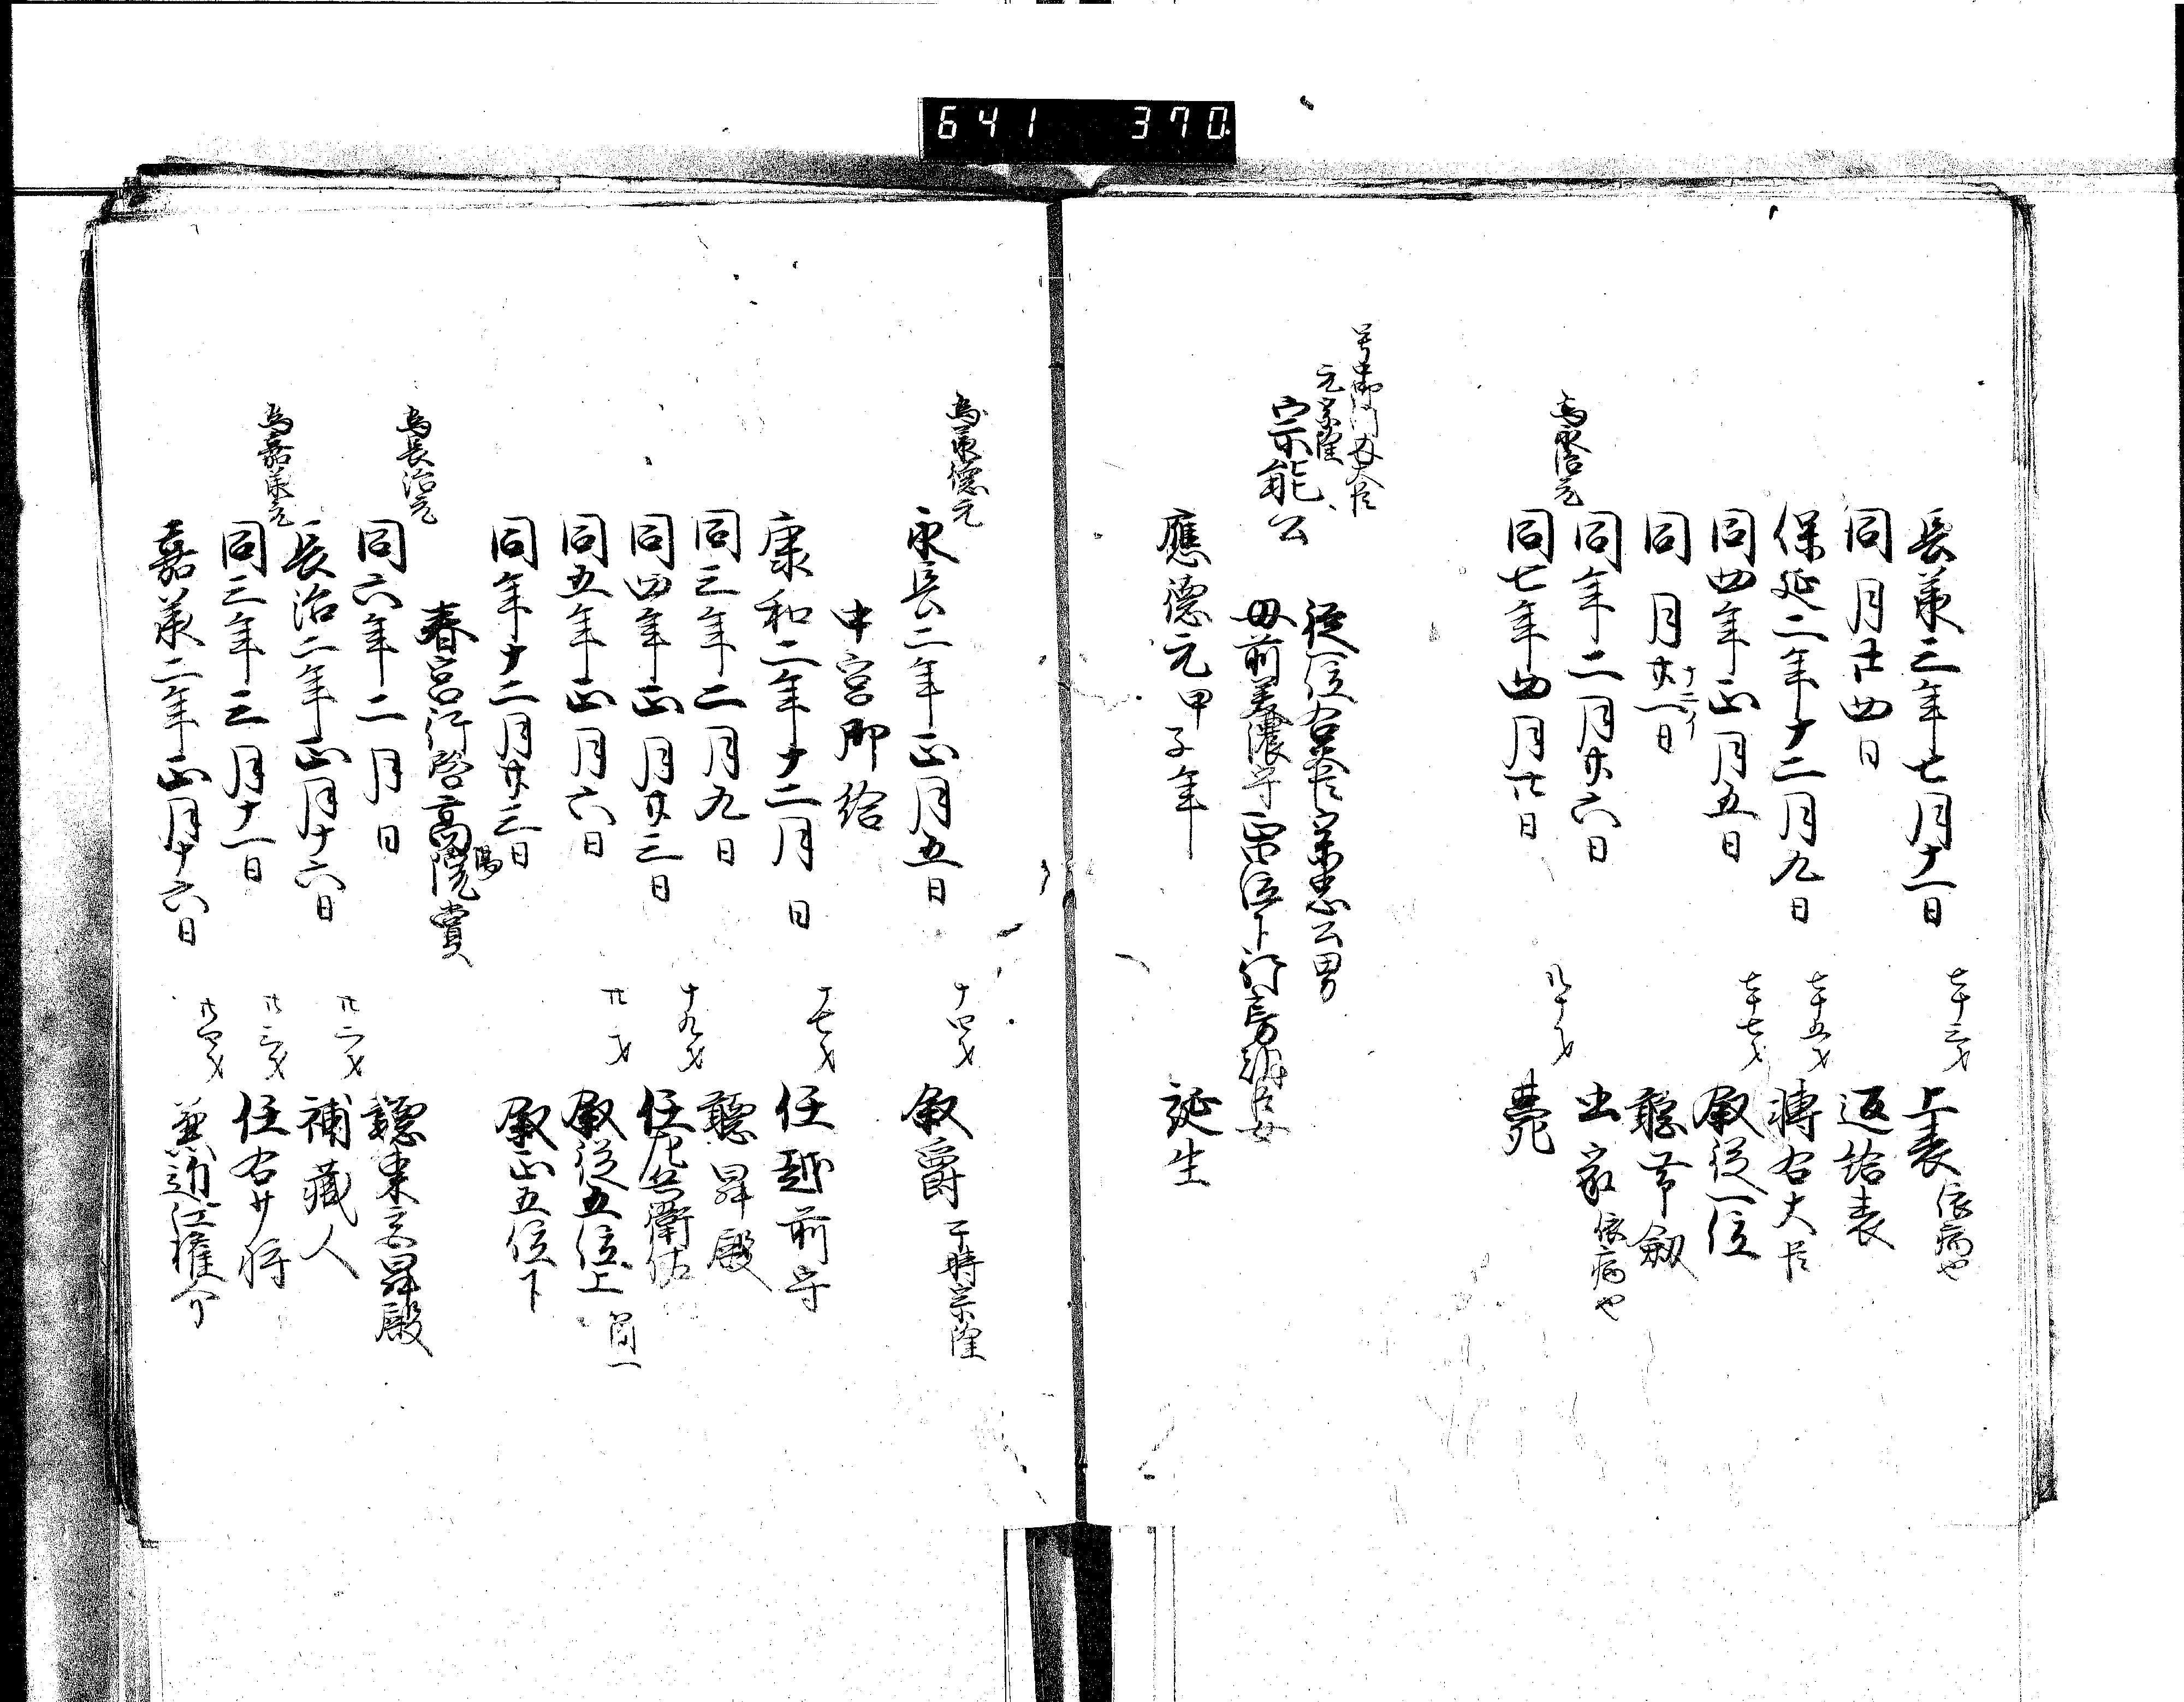 641 370
長承三年七月十一日 七十三才 上表 依病也
同月廿四日 返給表
保延二年十二月九日 七十五才 轉右大臣
同四年正月五日 七十七才 敘從一位
同月廿一日 十二イ 聽帶劔
同年二月廿六日 出家 依病也
為永治元
同七年四月廿日 八十才 薨
号中御門内大臣
元宗隆
宗能公
從一位右大臣宗忠公男
母前美濃守正四位下行房朝臣女
應德元甲子年 誕生
為承德元
永長二年正月五日 十四才 敘爵 于時宗隆
中宮御給
康和二年十二月 日 十七才 任越前守
同三年二月九日 聽昇殿
同四年正月廿三日 十九才 任左兵衛佐
同五年正月六日 廿才 敘從五位上 簡一
同年十二月廿三日 敘正五位下
春宮行啓高陽院賞
為長治元
同六年二月 日 聽東宮昇殿
長治二年正月十六日 廿二才 補藏人
為嘉承元
同三年三月十一日 廿三才 任右少将
嘉承二年正月十六日 廿四才 兼近江權介